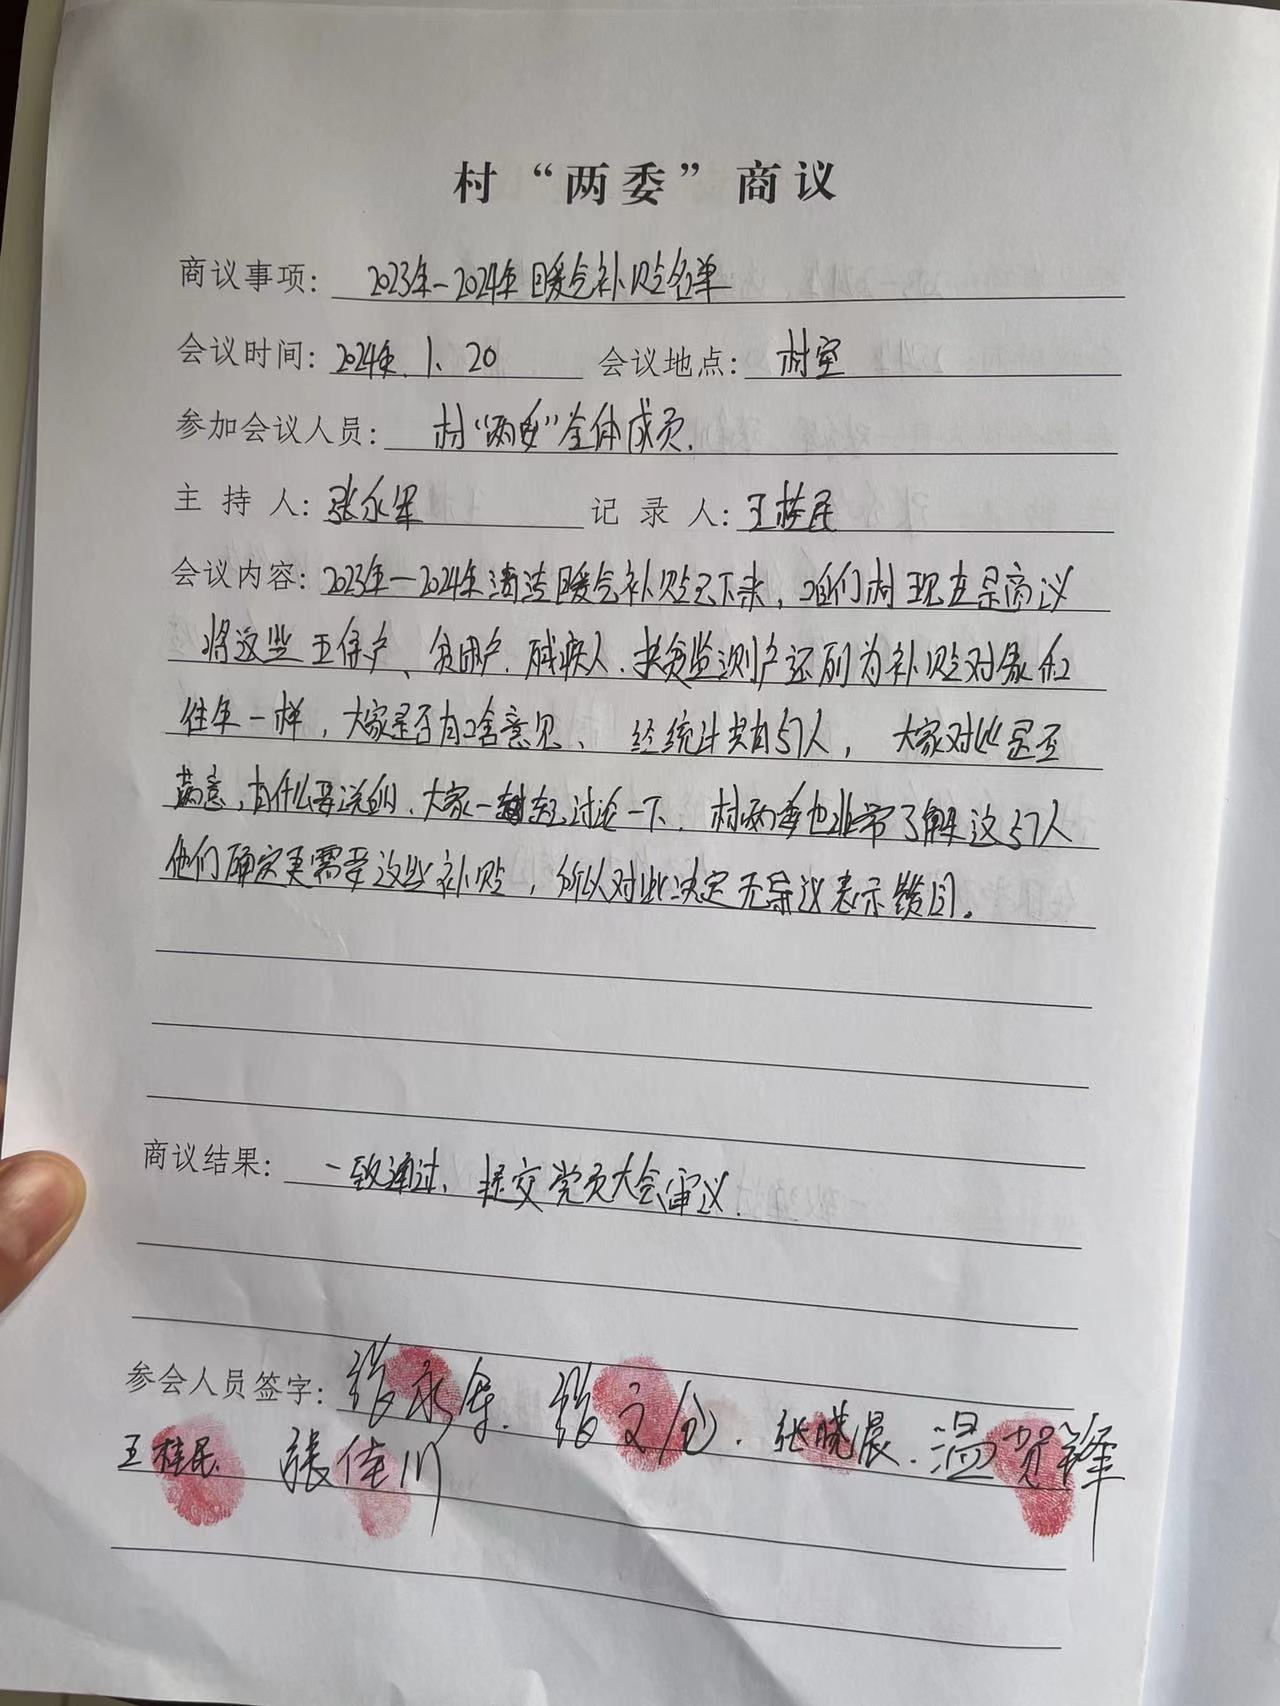 村“两委”商议
商议事项：2023年-2024年暖气补贴名单
会议时间：2024年.1.20 会议地点：村室
参加会议人员：村“两委”全体成员.
主持人：张永军 记录人：王桂民
会议内容：2023年-2024年清洁暖气补贴已下来，咱们村现在是商议
将这些五保户、贫困户.残疾人.扶贫监测户还列为补贴对象和
往年一样，大家是否有啥意见、经统计共有57人，大家对此是否
满意，有什么要说的.大家一起讨论一下.村两委也非常了解这57人
他们确定更需要这些补贴，所以对此决定无异议表示赞同。
商议结果：一致通过、提交党员大会审议.
参会人员签字：张永军. 张文. 张晓晨. 温贺锋
王桂民. 張佳川